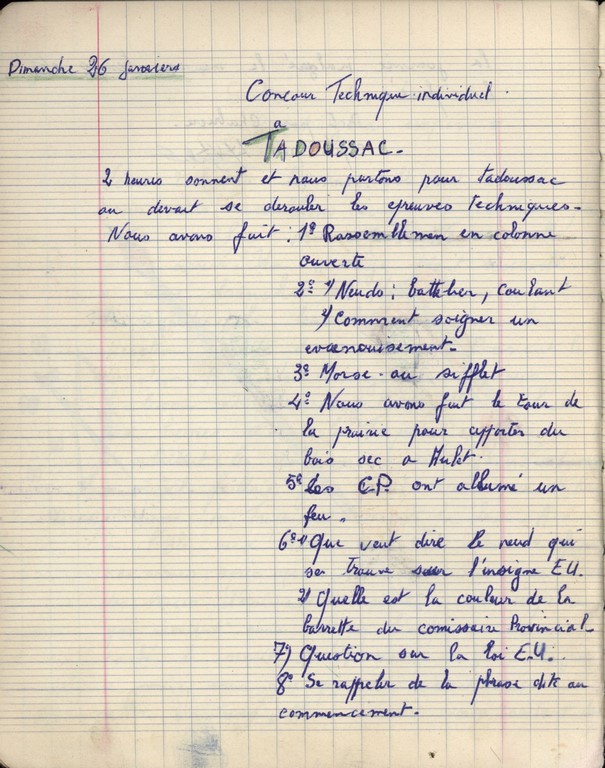 Dimanche 26 Janviers
Concour Technique individuel.
a
TADOUSSAC.
2 heures sonnent et nous partons pour tadoussac
ou devait se derouler les epreuves techniques.
Nous avons fait : 1º Rassemblemen en colonne
ouverte
2º 1) Neuds : battelier, courant
2) Comment soigner un
evanouissement.
3º Morse au sifflet
4º Nous avons fait le tour de
la prairie pour apporter du
bois sec a Hulet.
5º les C.P. ont allumé un
feu.
6º 1) Que veut dire le neud qui
se trouve sur l'insigne E.U.
2) Quelle est la couleur de la
barrette du comissaire Provincial
7º) Question sur la loi E.U.
8º Se rappeler de la phrase dite au
commencement.